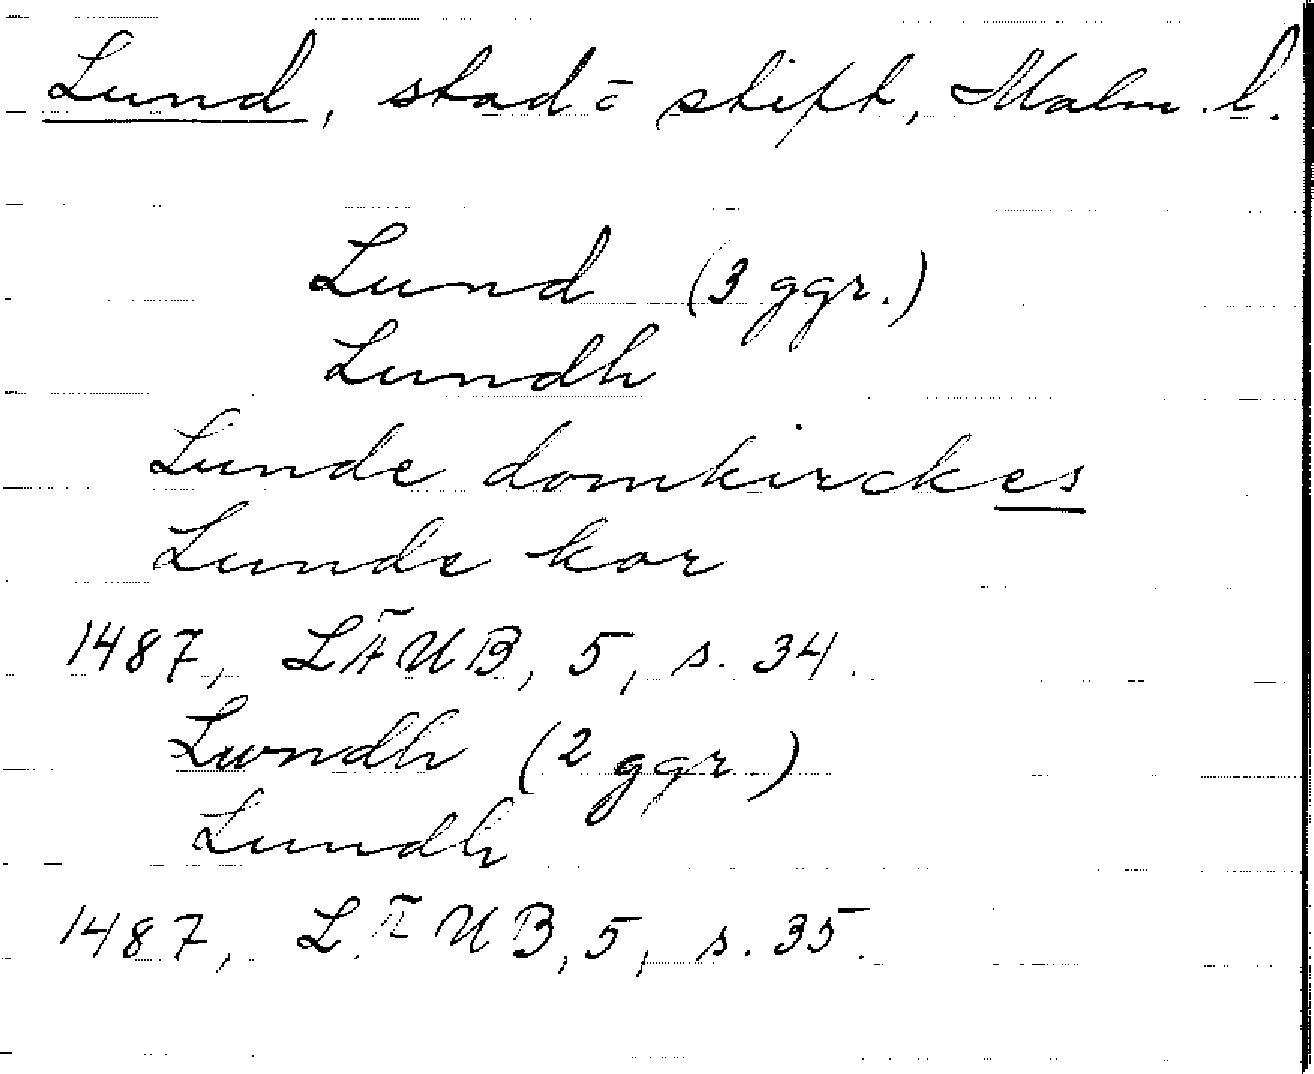 Lund, stad o stift, Malm. l.
Lund (3 ggr.)
Lundh
Lunde domkirckes
Lunde kor
1487, LÄUB, 5, s. 34.
Lwndh (2 ggr.)
Lundh
1487, LÄUB, 5, s. 35.